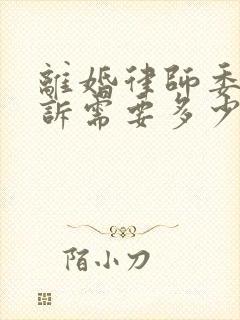 離婚律師委
訴需要多少
陌小刀